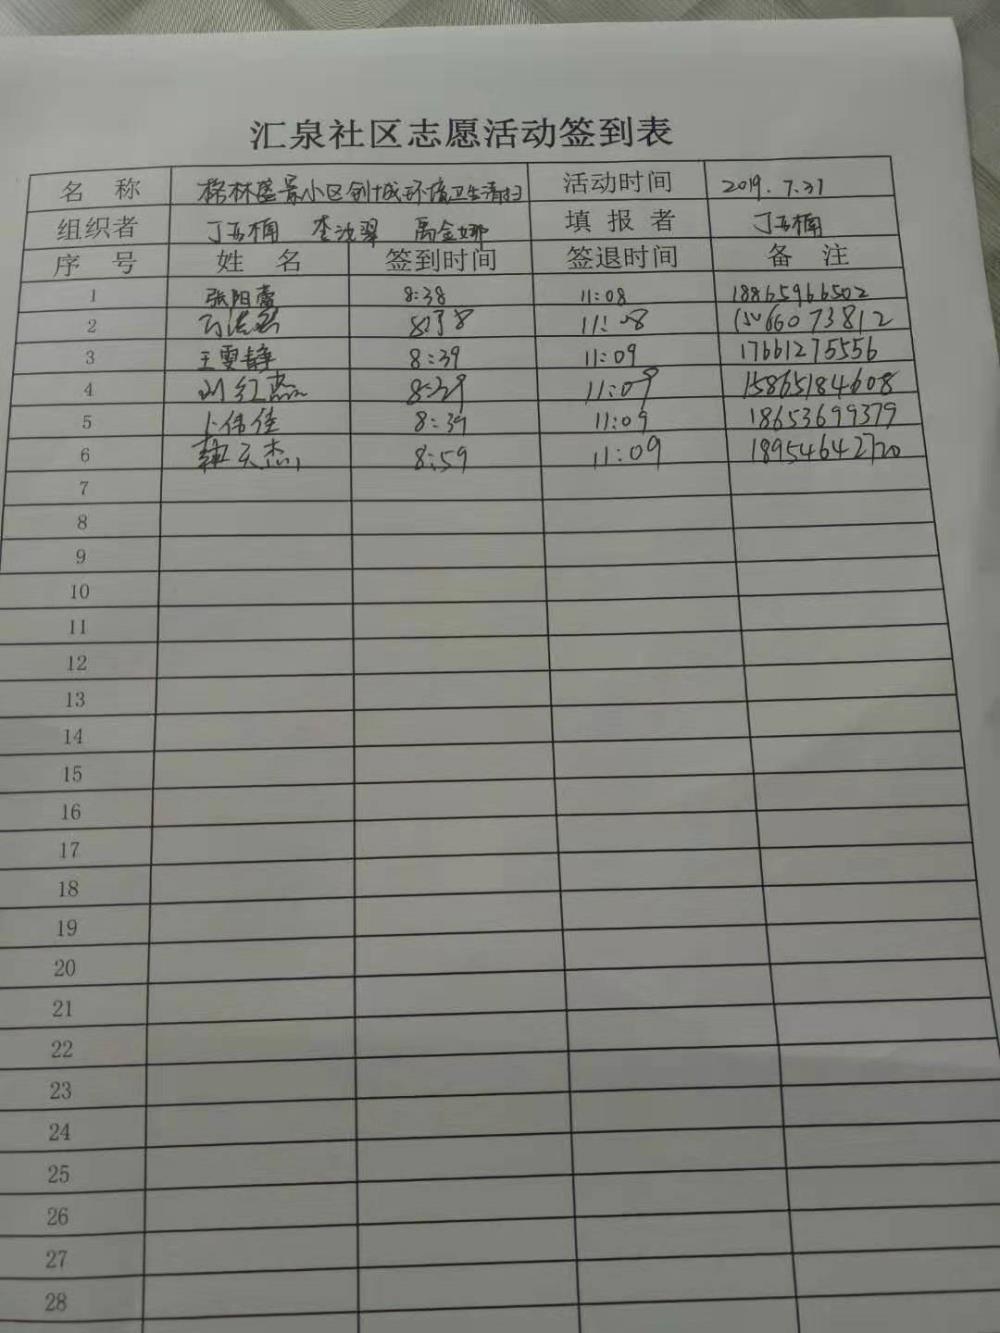 汇泉社区志愿活动签到表
名 称 格林盛景小区创城环境卫生清扫 活动时间 2019.7.31
组织者 丁玉楠 李 翠 禹金娜 填报者 丁玉楠
序 号 姓 名 签到时间 签退时间 备 注
1 张阳蕾 8:38 11:08 18865966502
2 11:08
3 王雯静 8:39 11:09 17661275556
4 刘红杰 8:39 11:09 15865184608
5 卜伟佳 8:39 11:09 18653699379
6 天杰 8:59 11:09
7
8
9
10
11
12
13
14
15
16
17
18
19
20
21
22
23
24
25
26
27
28